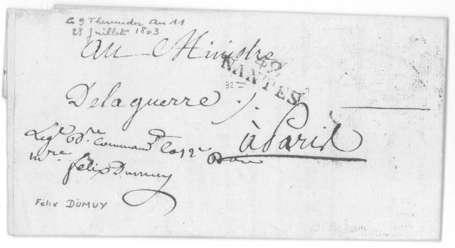 Le 9 Thermidor An 11
28 Juillet 1803
Au Ministre
42
NANTES
32
Delaguerre
à Paris
Le Gal. Command. la 12e
félix Dumuy
Felix DUMUY